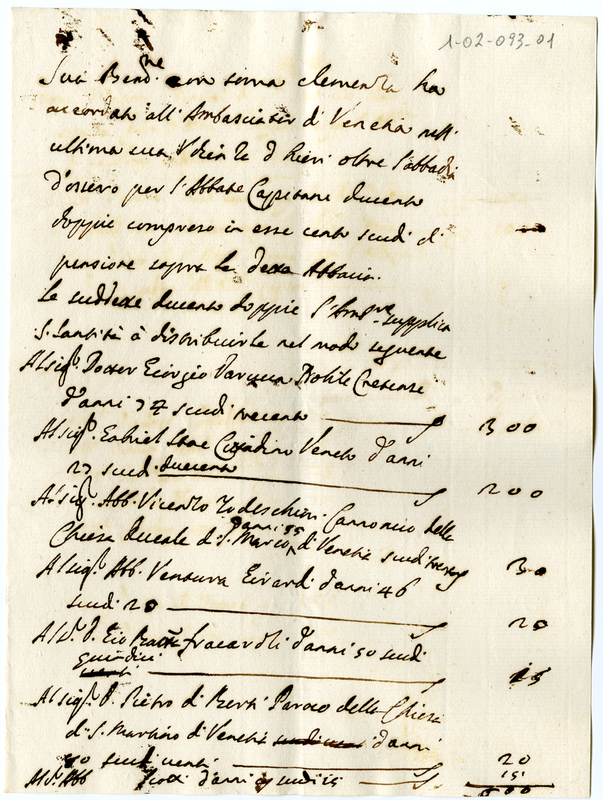 1-02-093-01
Sua Beatne con somma clemenza ha
accordato all'Ambasciator di Venetia nell'
ultima sua Udienza d'hieri oltre l'abbadia
d'ossero per l'Abbate Capitani ducento
doppie compreso in esse cento scudi di
pensione sopra la detta Abbatia.
Le suddette ducento doppie l'Ambre supplica
S. Santità à distribuirle nel modo seguente
Al sigr. Dotter Giorgio Nobile Cretense
d'anni 37 scudi trecento 300
Al sigr. Gabriel Cittadino Veneto d'anni
27 scudi ducento 200
Al sigr. Abb. Vicenzo Todeschini Cannonico della
d'anni 55
Chiesa Ducale di S. Marco di Venetia scudi trenta 30
Al sigr. Abb. Ventura d'anni 46
scudi 20 20
Al sr. D. Gio Batta fracaroli d'anni 50 scudi
quindici 15
Al sigr. D. Pietro di Berti Paroco della Chiesa
di S. Martino di Venetia d'anni
50 scudi venti 20
Al sr. Abb Scotti d'anni scudi 15 15
600